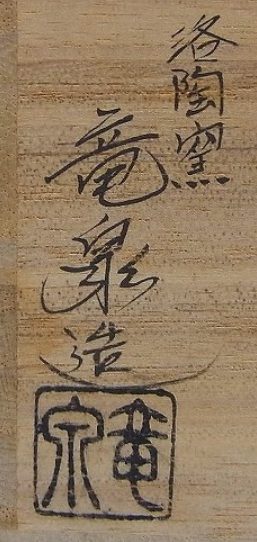 洛陶窯
竜泉造
竜泉